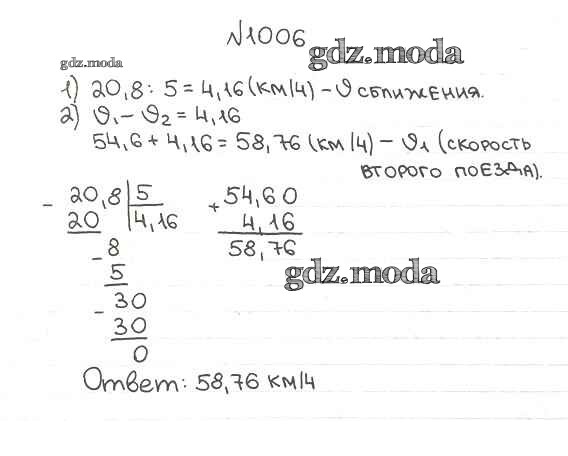 №1006
gdz.moda
gdz.moda
1) 20,8 : 5 = 4,16 (км/ч) – ϑ сближения.
2) ϑ₁ – ϑ₂ = 4,16
54,6 + 4,16 = 58,76 (км/ч) – ϑ₁ (скорость
второго поезда).
- 20,8 | 5
20 | 4,16
- 8
5
- 30
30
0
+ 54,60
4,16
58,76
gdz.moda
Ответ: 58,76 км/ч